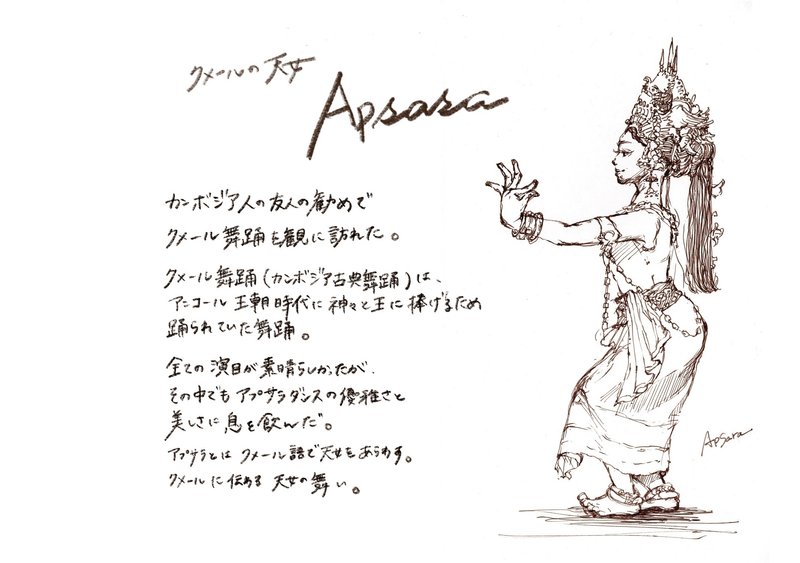 クメールの天女
Apsara
カンボジア人の友人の勧めで
クメール舞踊を観に訪れた。
クメール舞踊(カンボジア古典舞踊)は、
アンコール王朝時代に神々と王に捧げるため
踊られていた舞踊。
全ての演目が素晴らしかったが、
その中でもアプサラダンスの優雅さと
美しさに息を飲んだ。
アプサラとはクメール語で天女をあらわす。
クメールに伝わる天女の舞い。
Apsara